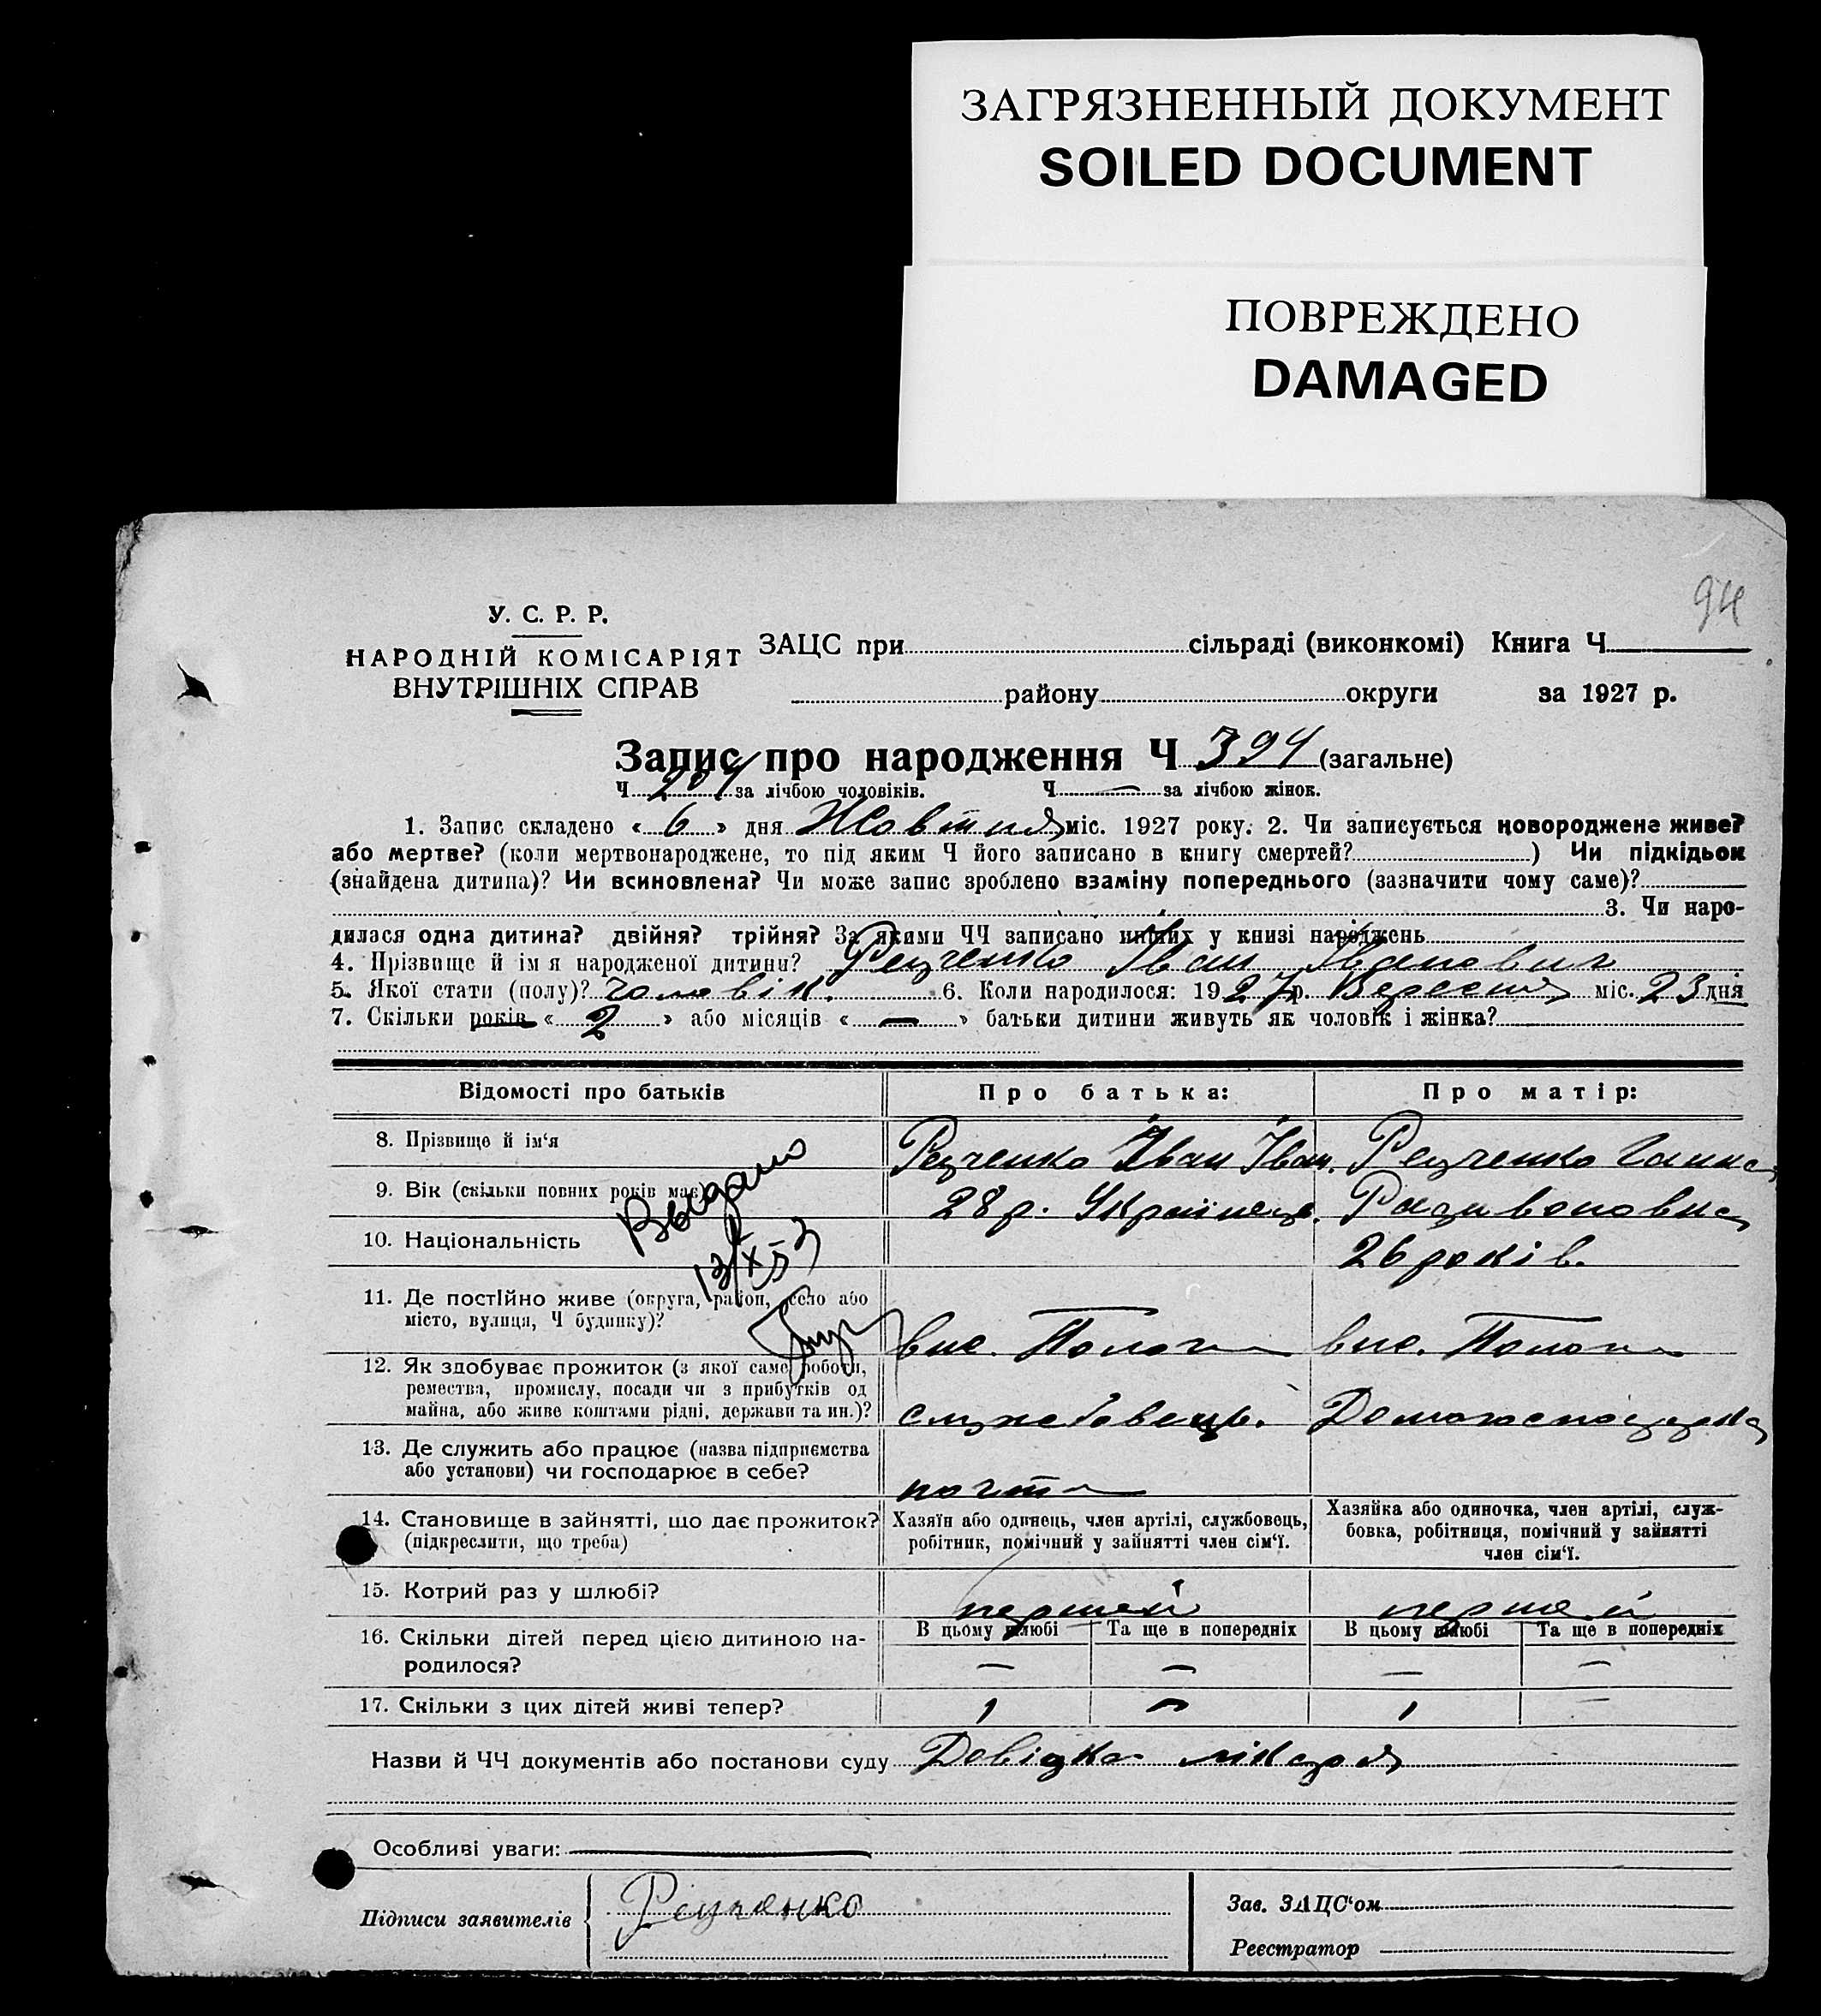 ЗАГРЯЗНЕННЫЙ ДОКУМЕНТ
SOILED DOCUMENT
ПОВРЕЖДЕНО
DAMAGED
94
У. С. Р. Р.
НАРОДНІЙ КОМІСАРІЯТ
ВНУТРІШНІХ СПРАВ
ЗАЦС при сільраді (виконкомі) Книга Ч.
району округи за 1927 р.
Запис про народження Ч 394 (загальне)
Ч. 201 за лічбою чоловіків. Ч. — за лічбою жінок.
1. Запис складено « 6 » дня Жовтня міс. 1927 року. 2. Чи записується новороджене живе?
або мертве? (коли мертвонароджене, то під яким Ч його записано в книгу смертей? ) Чи підкідьок
(знайдена дитина)? Чи всиновлена? Чи може запис зроблено взаміну попереднього (зазначити чому саме)?
3. Чи наро-
дилася одна дитина? двійня? трійня? За якими ЧЧ записано инших у книзі народжень
4. Прізвище й ім я народженої дитини? Іван Іванович
5. Якої стати (полу)? чоловік. 6. Коли народилося: 1927 р. Вересня міс. 23 дня
7. Скільки років « 2 » або місяців « — » батьки дитини живуть як чоловік і жінка?
Відомості про батьків Про батька: Про матір:
8. Прізвище й ім'я Іван Іван.
9. Вік (скільки повних років має) 28 р. Українець.
10. Національність 26 років.
Выдано
13/X 53
11. Де постійно живе (округа, район, село або
місто, вулиця, Ч будинку)? вис. Пологи вис. Пологи
12. Як здобуває прожиток (з якої саме роботи,
ремества, промислу, посади чи з прибутків од
майна, або живе коштами рідні, держави та ин.)? службовець. Домогосподарка
13. Де служить або працює (назва підприємства
або установи) чи господарює в себе? почта
14. Становище в зайнятті, що дає прожиток?
(підкреслити, що треба)
Хазяїн або одинець, член артілі, службовець,
робітник, помічний у зайнятті член сім'ї.
Хазяйка або одиночка, член артілі, служ-
бовка, робітниця, помічний у зайнятті
член сім'ї.
15. Котрий раз у шлюбі? первий первий
16. Скільки дітей перед цією дитиною на-
родилося?
В цьому шлюбі Та ще в попередніх В цьому шлюбі Та ще в попередніх
— — — —
17. Скільки з цих дітей живі тепер? 1 — 1 —
Назви й ЧЧ документів або постанови суду Довідка лікаря
Особливі уваги:
Підписи заявителів
Зав. ЗАЦС'ом
Реєстратор